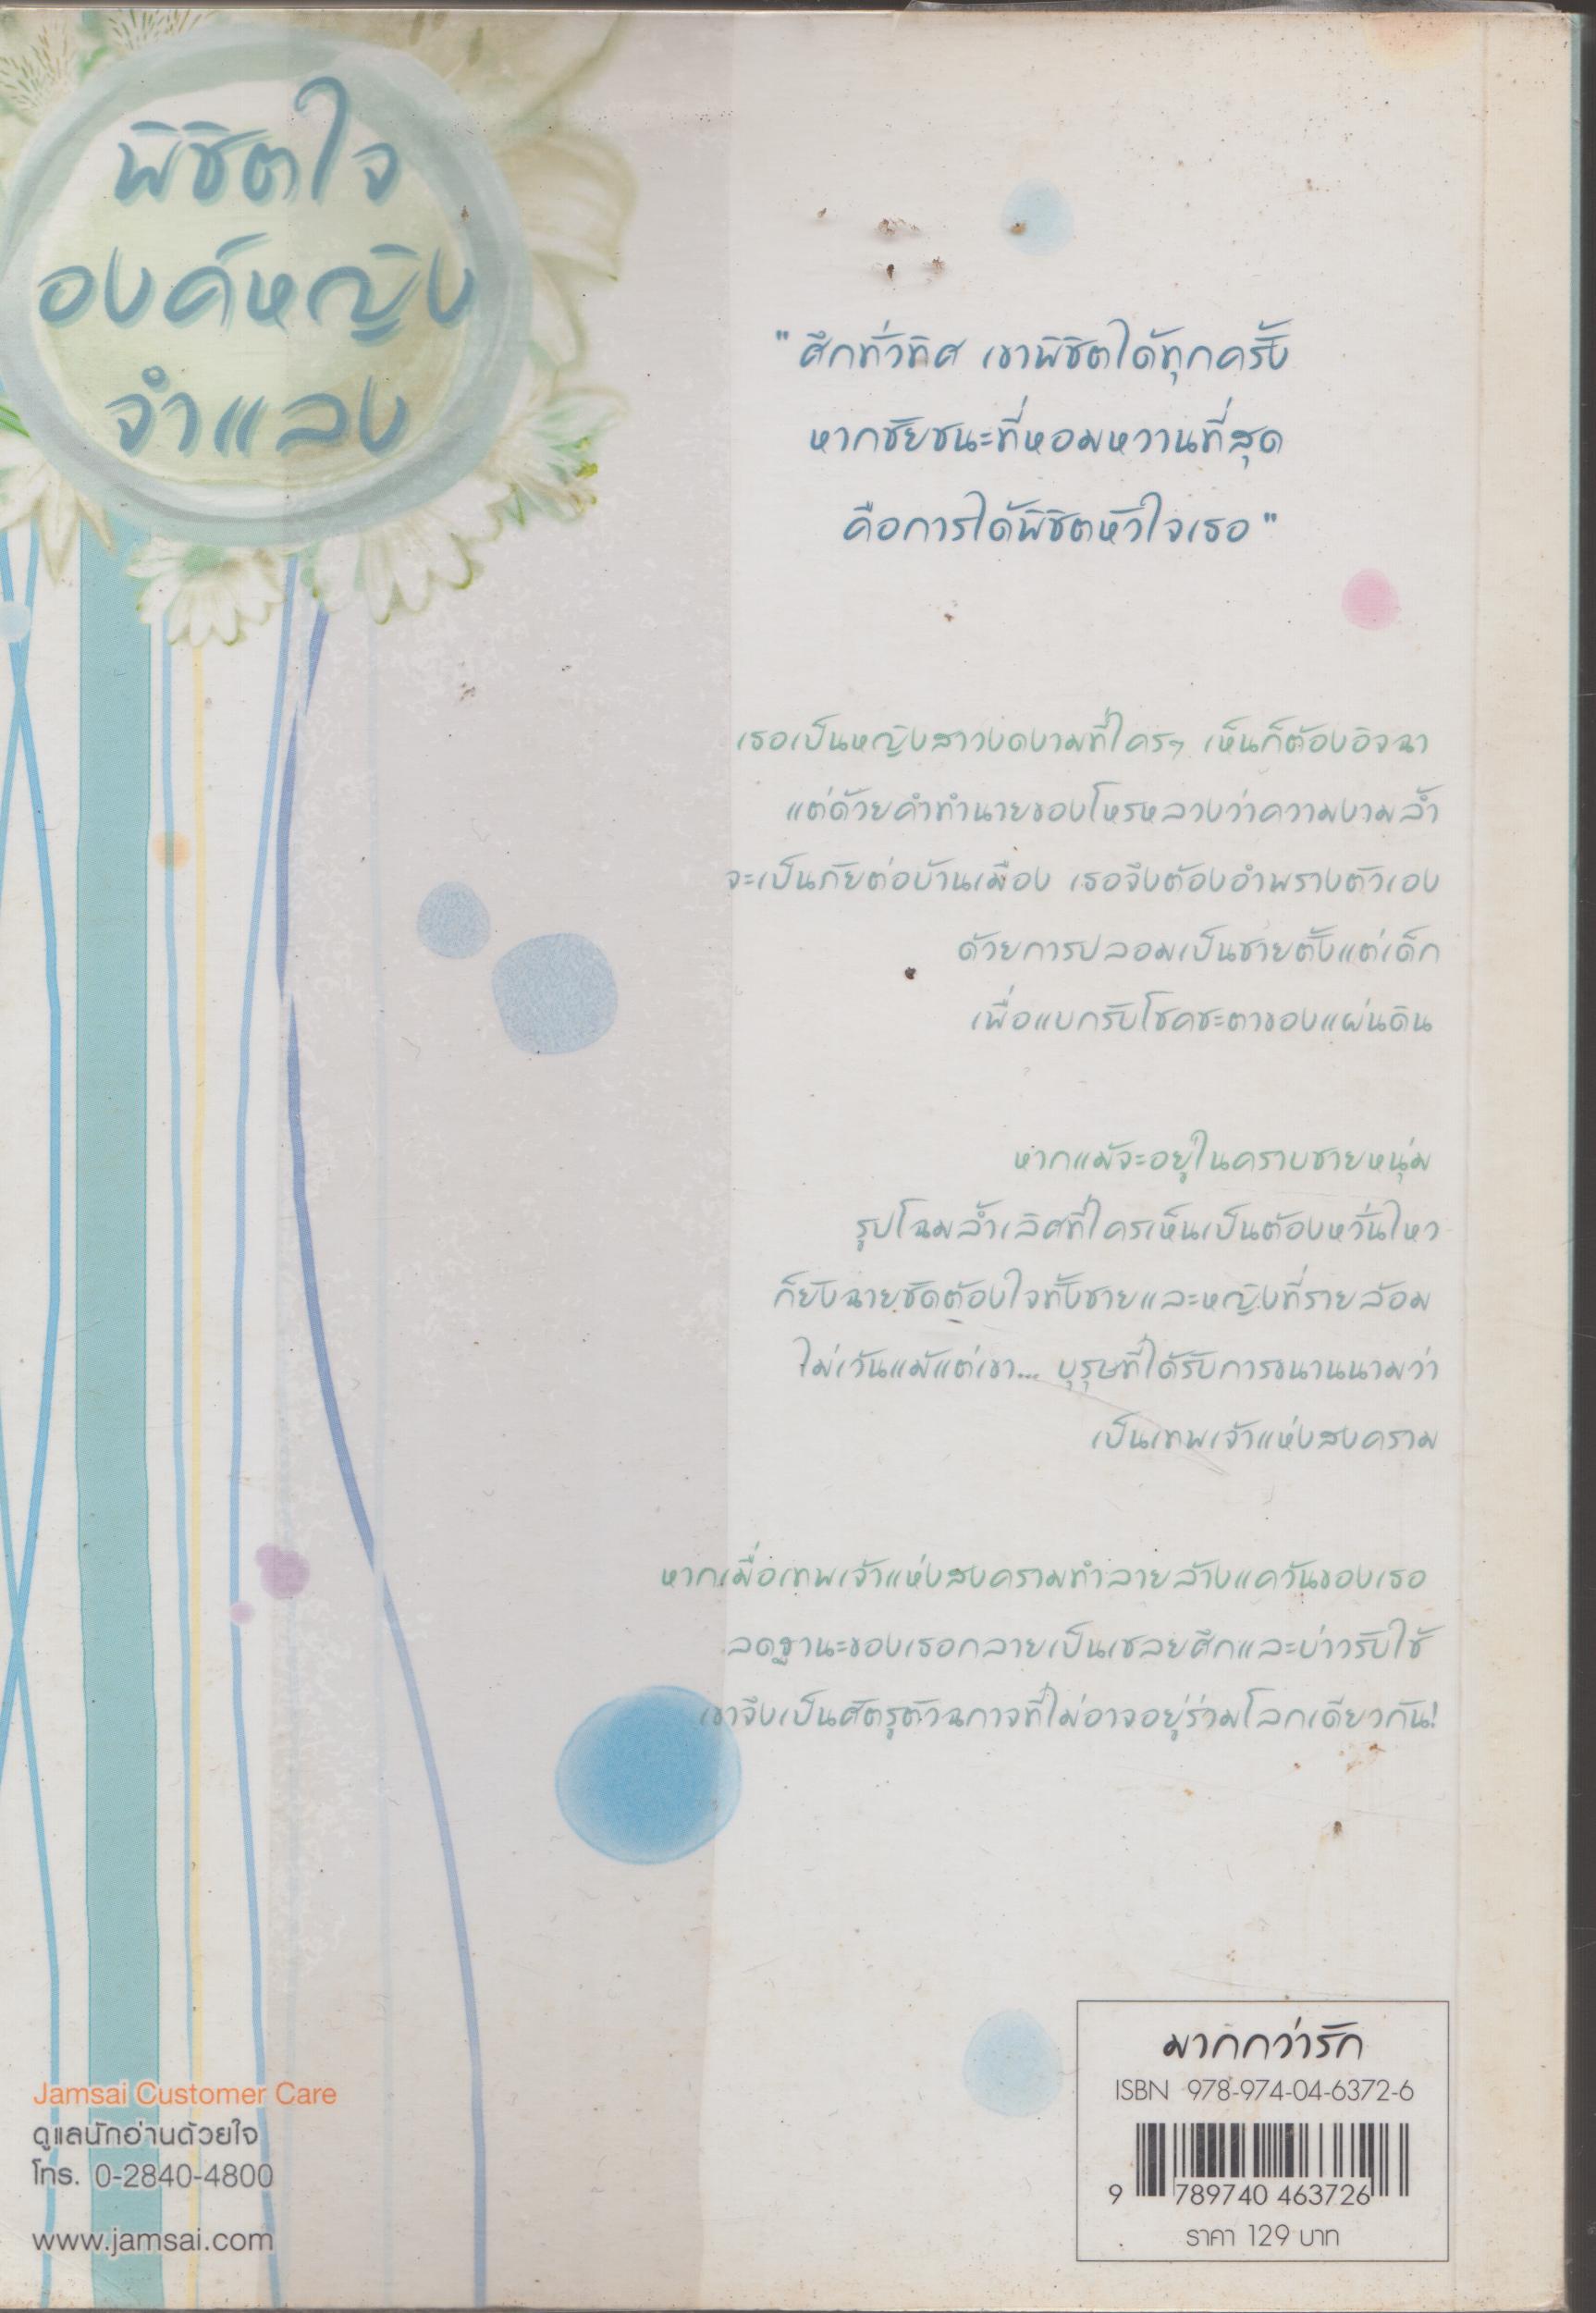 พิชิตใจ
องค์หญิง
จำแลง
" ศึกทั่วทิศ เขาพิชิตได้ทุกครั้ง
หากชัยชนะที่หอมหวานที่สุด
คือการได้พิชิตหัวใจเธอ "
เธอเป็นหญิงสาวงดงามที่ใครๆ เห็นก็ต้องอิจฉา
แต่ด้วยคำทำนายของโหรหลวงว่าความงามล้ำ
จะเป็นภัยต่อบ้านเมือง เธอจึงต้องอำพรางตัวเอง
ด้วยการปลอมเป็นชายตั้งแต่เด็ก
เพื่อแบกรับโชคชะตาของแผ่นดิน
หากแม้จะอยู่ในคราบชายหนุ่ม
รูปโฉมล้ำเลิศที่ใครเห็นเป็นต้องหวั่นไหว
ก็ยังฉายชัดต้องใจทั้งชายและหญิงที่รายล้อม
ไม่เว้นแม้แต่เขา... บุรุษที่ได้รับการขนานนามว่า
เป็นเทพเจ้าแห่งสงคราม
หากเมื่อเทพเจ้าแห่งสงครามทำลายล้างแคว้นของเธอ
ลดฐานะของเธอกลายเป็นเชลยศึกและบ่าวรับใช้
เขาจึงเป็นศัตรูตัวฉกาจที่ไม่อาจอยู่ร่วมโลกเดียวกัน!
Jamsai Customer Care
ดูแลนักอ่านด้วยใจ
โทร. 0-2840-4800
www.jamsai.com
มากกว่ารัก
ISBN 978-974-04-6372-6
9 789740 463726
ราคา 129 บาท